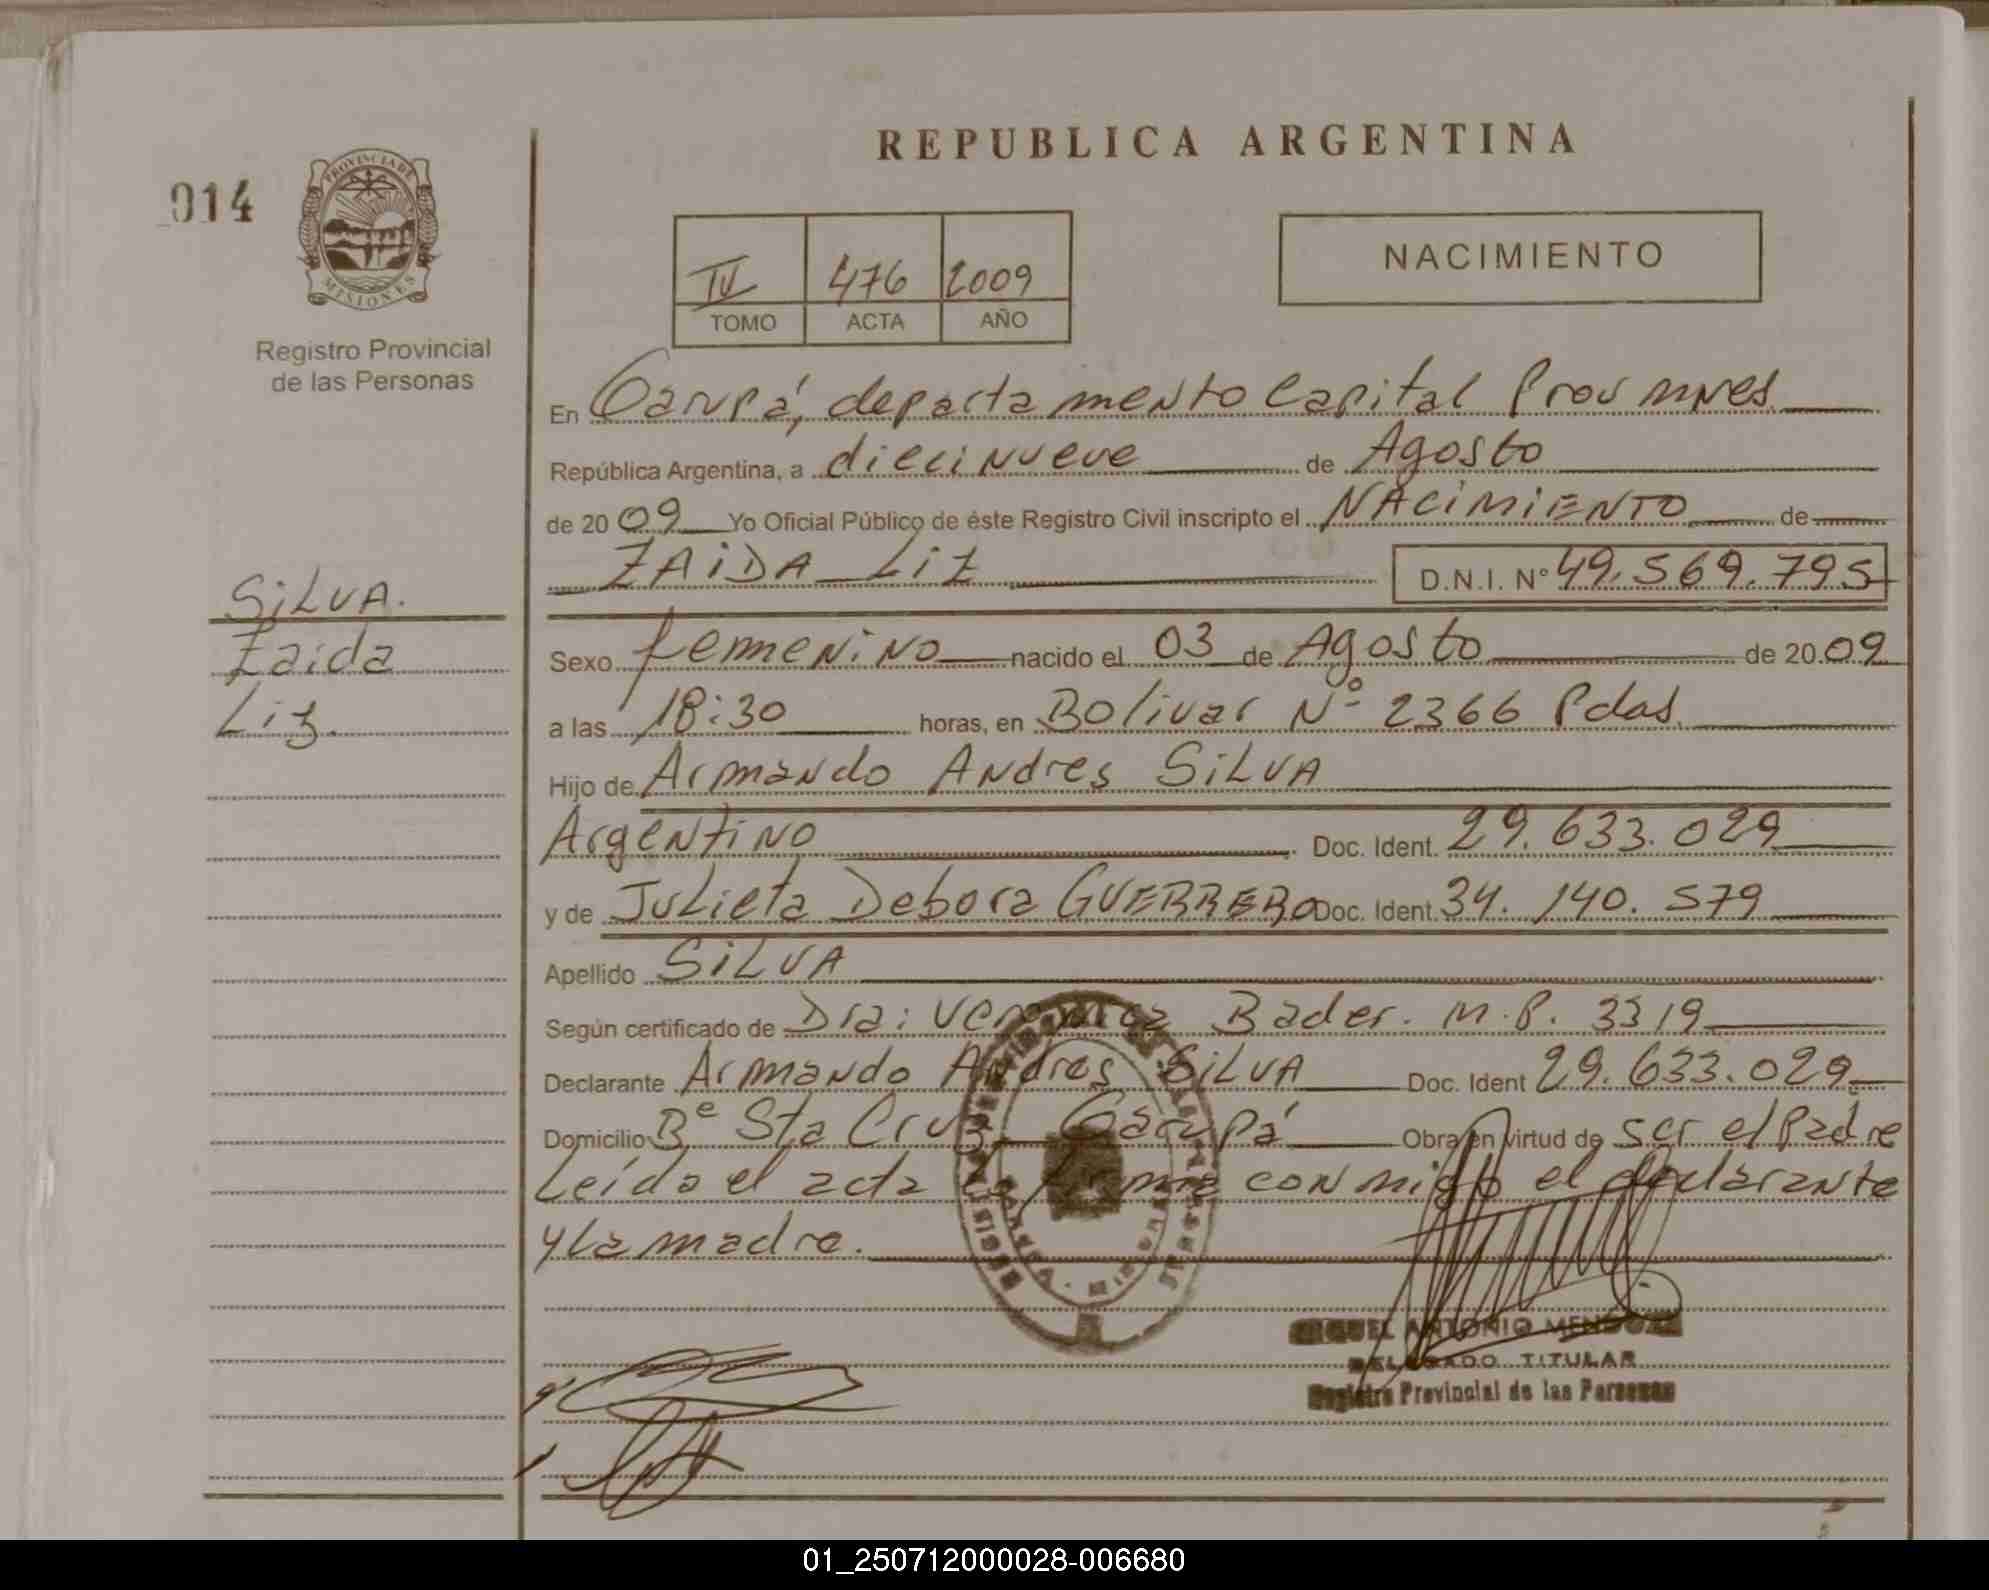 REPUBLICA ARGENTINA
014
PROVINCIA DE
MISIONES
Registro Provincial
de las Personas
IV 476 2009
TOMO ACTA AÑO
NACIMIENTO
En Garupá, departamento Capital Prov mnes.
República Argentina, a diecinueve de Agosto
de 2009 Yo Oficial Público de éste Registro Civil inscripto el NACIMIENTO de
ZAIDA LIZ D.N.I. Nº 49.569.795
SILVA.
Zaida
Liz.
Sexo femenino nacido el 03 de Agosto de 2009
a las 18:30 horas, en Bolivar Nº 2366 Pdas.
Hijo de Armando Andres SILVA
Argentino Doc. Ident. 29.633.029
y de Julieta Debora GUERRERO Doc. Ident. 34.140.579
Apellido SILVA
Según certificado de Dra: Veronica Bader. M.P. 3319
Declarante Armando Andres SILVA Doc. Ident 29.633.029
Domicilio Bº Sta Cruz Garupá Obra en virtud de ser el Padre
Leído el acta la firma conmigo el declarante
y la madre.
MIGUEL ANTONIO MENDOZA
DELEGADO TITULAR
Registro Provincial de las Personas
01_250712000028-006680